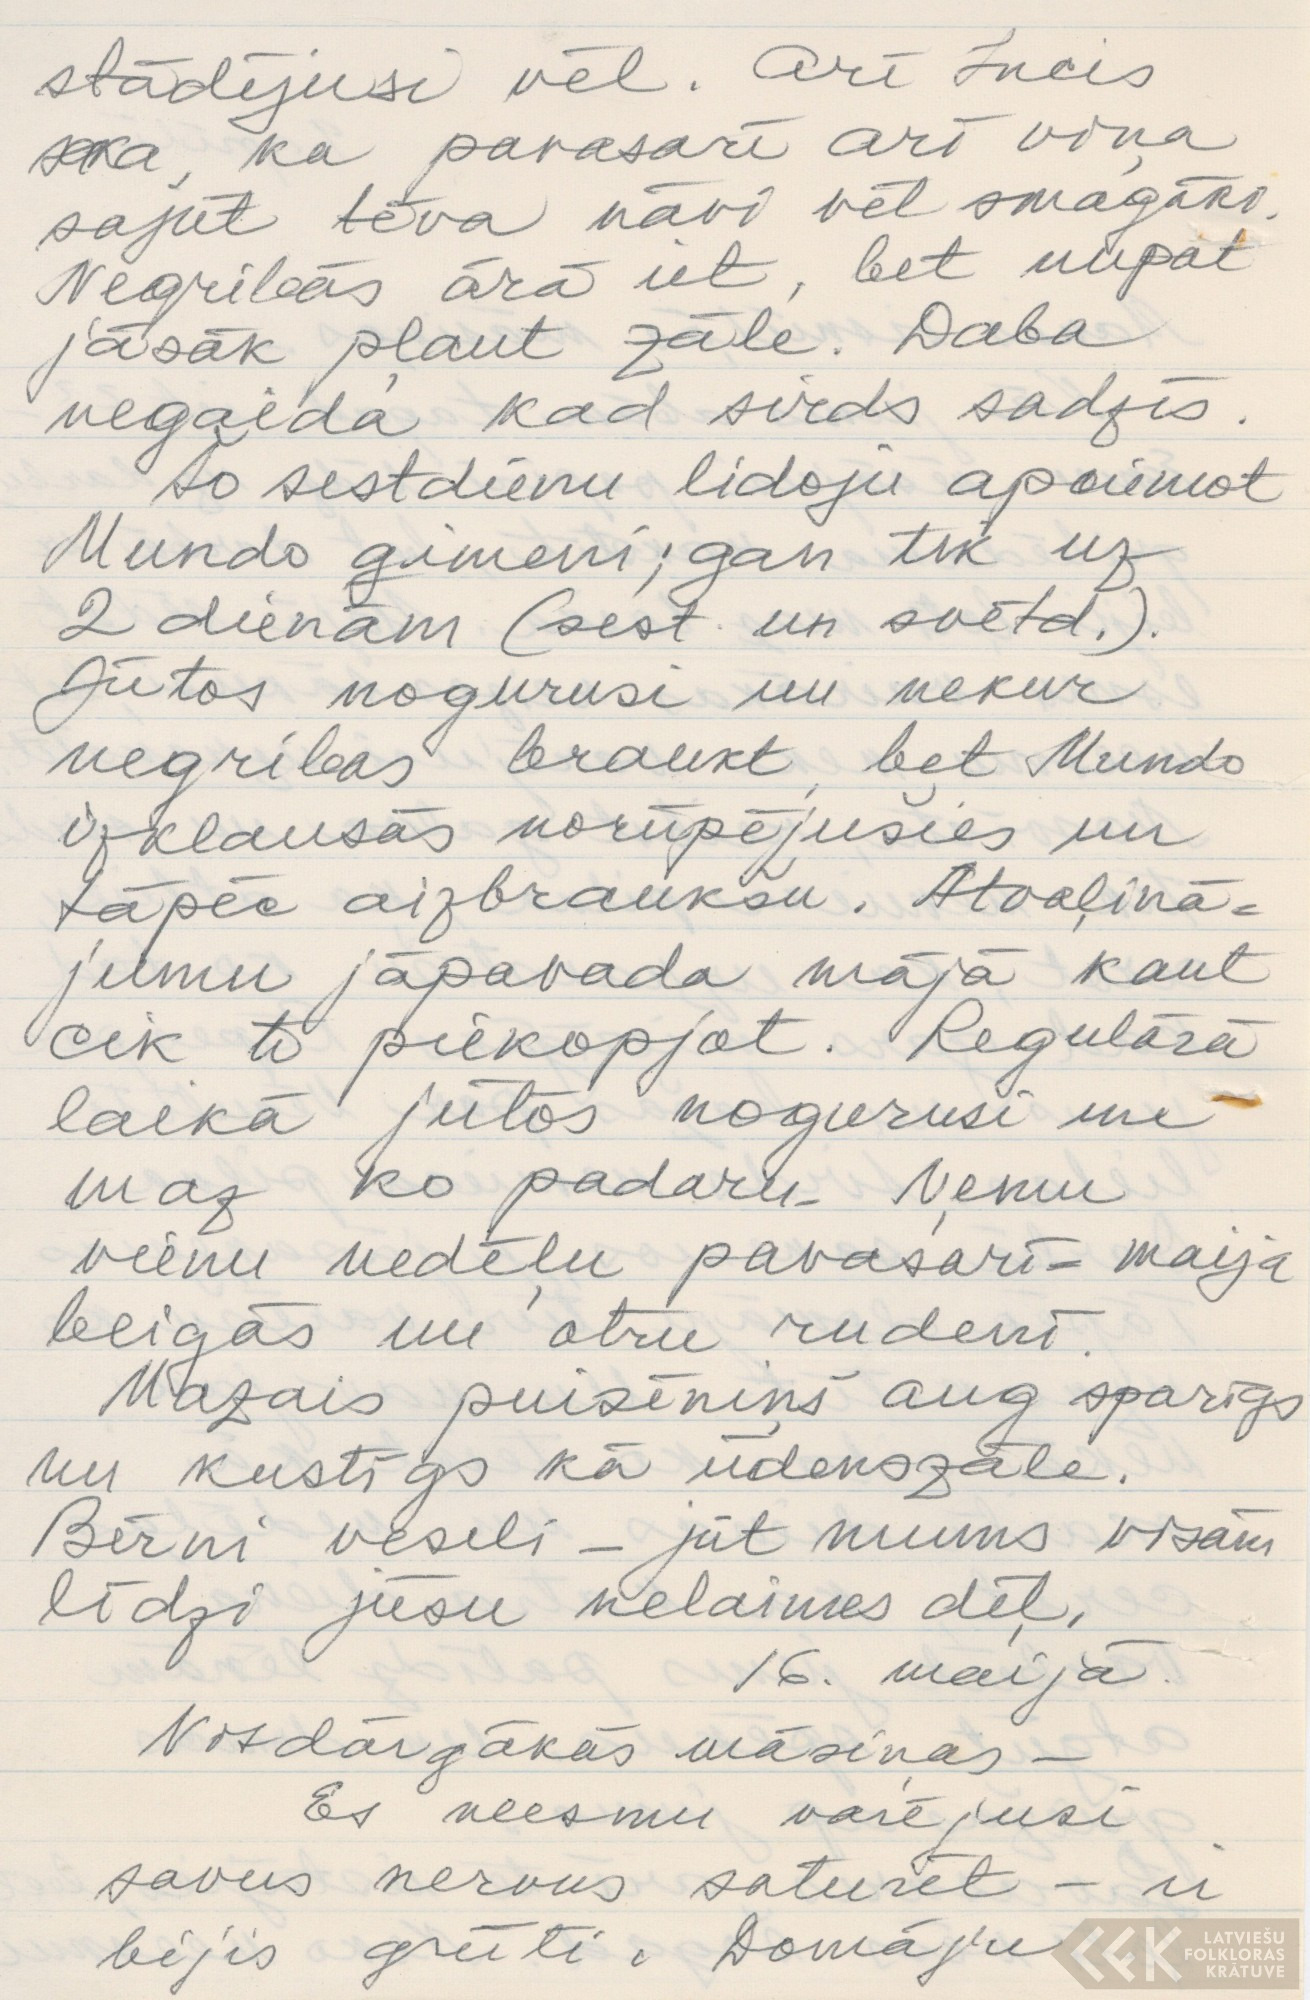 stādījusi vēl. Arī Incis
saka, ka pavasarī arī viņa
sajūt tēva nāvi vēl smagāki.
Negribās ārā iet, bet nupat
jāsāk pļaut zāle. Daba
negaida kad sirds sadzīs.
Šo sestdienu lidoju apciemot
Mundo ģimeni; gan tik uz
2 dienām (sest. un svētd.).
Jūtos nogurusi un nekur
negribas braukt, bet Mundo
izklausās norūpējušies un
tāpēc aizbraukšu. Atvaļinā=
jumu jāpavada mājā kaut
cik to piekopjot. Regulārā
laikā jūtos nogurusi un
maz ko padaru. Ņemu
vienu nedēļu pavasarī = maija
beigās un otru rudenī.
Mazais puisēniņš aug sparīgs
un kustīgs kā ūdenszāle.
Bērni veseli – jūt mums visām
līdzi jūsu nelaimes dēļ.
16. maijā.
Visdārgākās māsiņas –
Es neesmu varējusi
savus nervus saturēt – ir
bijis grūti. Domāju
LATVIEŠU
FOLKLORAS
KRĀTUVE